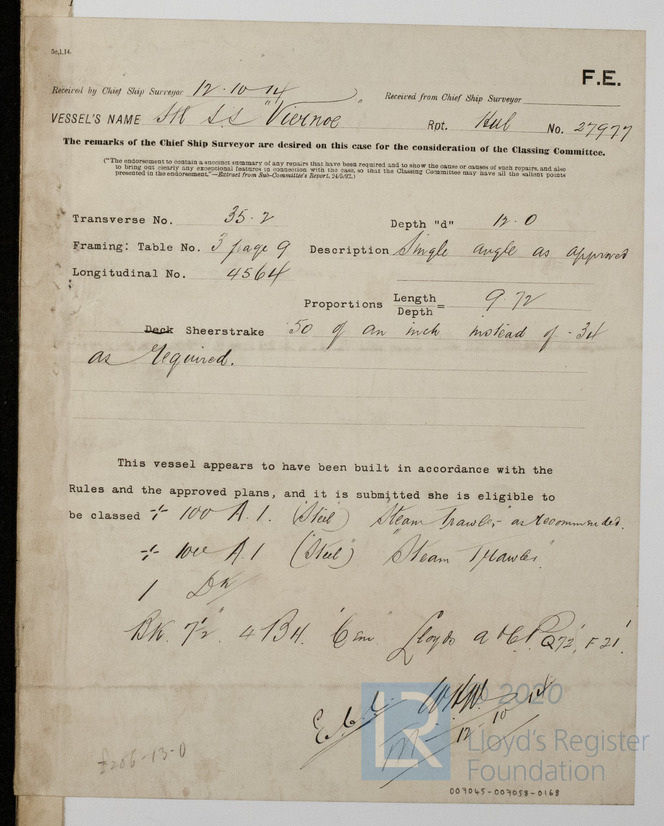 5c,1.14.
F.E.
Received by Chief Ship Surveyor 12.10.14 Received from Chief Ship Surveyor
VESSEL'S NAME S.S "Viernoe" Rpt. Hul No. 27977
The remarks of the Chief Ship Surveyor are desired on this case for the consideration of the Classing Committee.
("The endorsement to contain a succinct summary of any repairs that have been required and to show the cause or causes of such repairs, and also
to bring out clearly any exceptional features in connection with the case, so that the Classing Committee may have all the salient points
presented in the endorsement."—Extract from Sub-Committee's Report,
Transverse No. 35.2 Depth "d" 12.0
Framing: Table No. 3 page 9 Description Single angle as approved
Longitudinal No. 4564
Proportions Length/Depth = 9.72
Deck Sheerstrake .50 of an inch instead of .34
as required.
This vessel appears to have been built in accordance with the
Rules and the approved plans, and it is submitted she is eligible to
be classed 100 A.1. (Steel) "Steam Trawler" as recommended.
100 A.1 (Steel) "Steam Trawler"
1 Dk
BK. 7½" 4 BH. Cem Lloyds A & CP. Q72', F21'.
W.H.W.
12.10.14
£206-13-0
2020
LR
Lloyd's Register
Foundation
009045-009058-0168